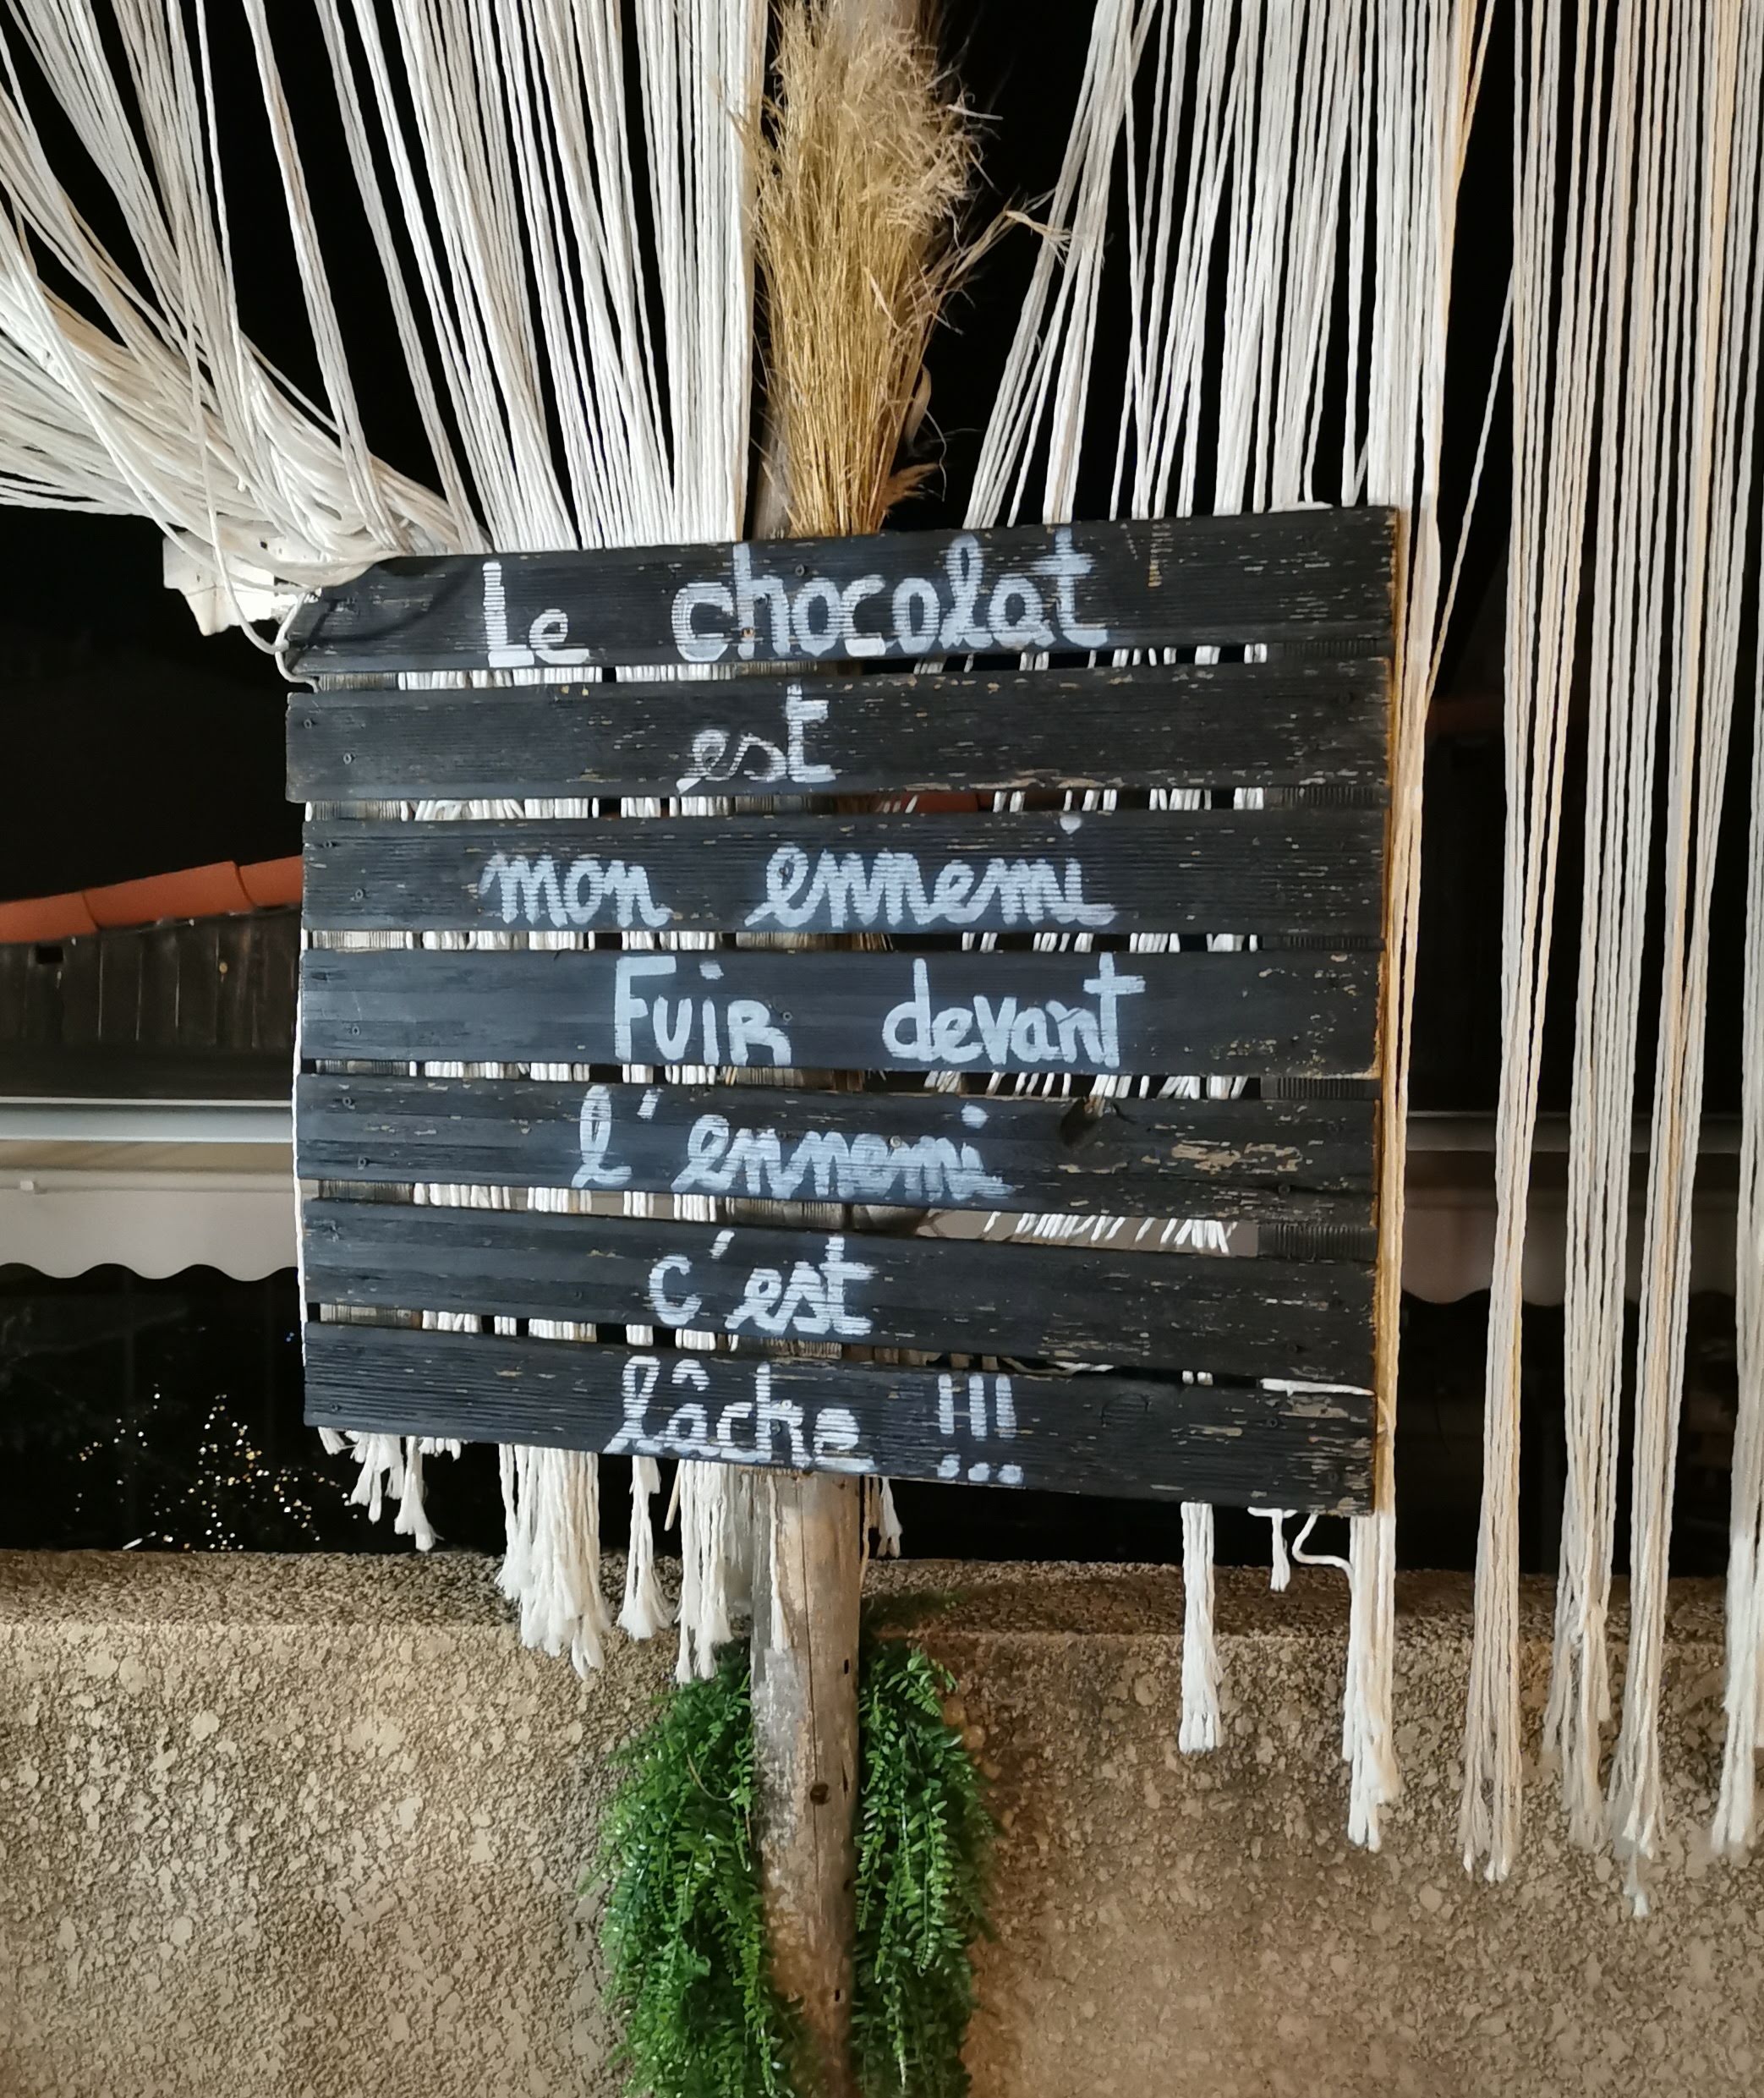 Le chocolat
est
mon ennemi
Fuir devant
l'ennemi
c'est
lâche !!!